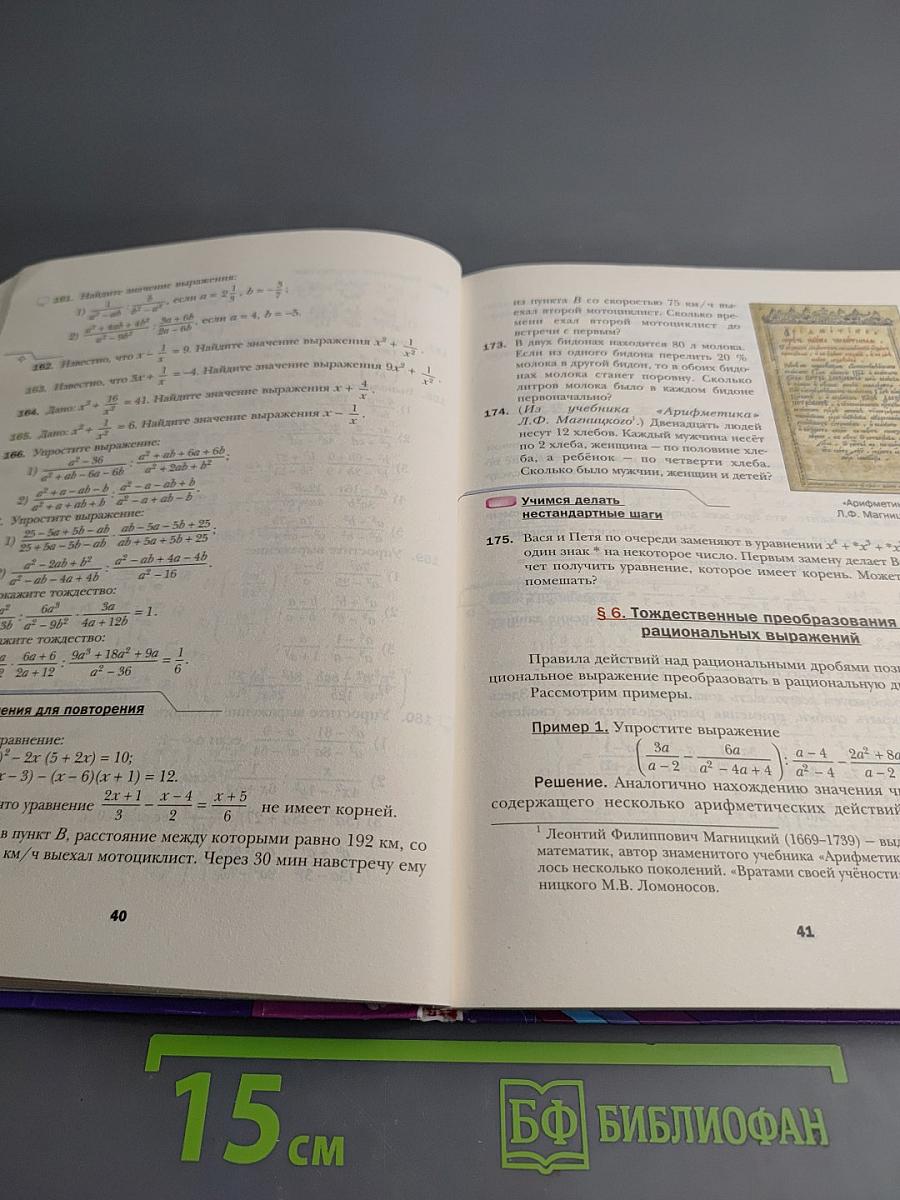 161. Найдите значение выражения:
1) 1/(a² – ab) : b/(b² – a²), если a = 2 1/3, b = –3/7;
2) (a² + 4ab + 4b²)/(a² – 9b²) : (3a + 6b)/(2a – 6b), если a = 4, b = –5.
162. Известно, что x – 1/x = 9. Найдите значение выражения x² + 1/x².
163. Известно, что 3x + 1/x = –4. Найдите значение выражения 9x² + 1/x².
164. Дано: x² + 16/x² = 41. Найдите значение выражения x + 4/x.
165. Дано: x² + 1/x² = 6. Найдите значение выражения x – 1/x.
166. Упростите выражение:
1) (a² – 36)/(a² + ab – 6a – 6b) : (a² + ab + 6a + 6b)/(a² + 2ab + b²);
2) (a² + a – ab – b)/(a² + a + ab + b) : (a² – a – ab + b)/(a² – a + ab – b).
Упростите выражение:
1) (25 – 5a + 5b – ab)/(25 + 5a – 5b – ab) : (ab – 5a – 5b + 25)/(ab + 5a + 5b + 25);
(a² – 2ab + b²)/(a² – ab – 4a + 4b) : (a² – ab + 4a – 4b)/(a² – 16).
окажите тождество:
a²/3b : 6a³/(a² – 9b²) · 3a/(4a + 12b) = 1.
ажите тождество:
(6a + 6)/(2a + 12) : (9a³ + 18a² + 9a)/(a² – 36) = 1/6.
ения для повторения
равнение:
)² – 2x (5 + 2x) = 10;
x – 3) – (x – 6)(x + 1) = 12.
что уравнение (2x + 1)/3 – (x – 4)/2 = (x + 5)/6 не имеет корней.
в пункт B, расстояние между которыми равно 192 км, со
км/ч выехал мотоциклист. Через 30 мин навстречу ему
40
из пункта B со скоростью 75 км/ч вы-
ехал второй мотоциклист. Сколько вре-
мени ехал второй мотоциклист до
встречи с первым?
173. В двух бидонах находится 80 л молока.
Если из одного бидона перелить 20 %
молока в другой бидон, то в обоих бидо-
нах молока станет поровну. Сколько
литров молока было в каждом бидоне
первоначально?
174. (Из учебника «Арифметика»
Л.Ф. Магницкого¹.) Двенадцать людей
несут 12 хлебов. Каждый мужчина несёт
по 2 хлеба, женщина – по половине хле-
ба, а ребёнок – по четверти хлеба.
Сколько было мужчин, женщин и детей?
«Арифмети
Л.Ф. Магниц
Учимся делать
нестандартные шаги
175. Вася и Петя по очереди заменяют в уравнении x⁴ + *x³ + *x
один знак * на некоторое число. Первым замену делает В
чет получить уравнение, которое имеет корень. Может
помешать?
§ 6. Тождественные преобразования
рациональных выражений
Правила действий над рациональными дробями позв
циональное выражение преобразовать в рациональную д
Рассмотрим примеры.
Пример 1. Упростите выражение
(3a/(a – 2) – 6a/(a² – 4a + 4)) : (a – 4)/(a² – 4) – (2a² + 8a)/(a – 2)
Решение. Аналогично нахождению значения чи
содержащего несколько арифметических действий
¹ Леонтий Филиппович Магницкий (1669–1739) – выд
математик, автор знаменитого учебника «Арифметик
лось несколько поколений. «Вратами своей учёности
ницкого М.В. Ломоносов.
41
15 см
БФ БИБЛИОФАН